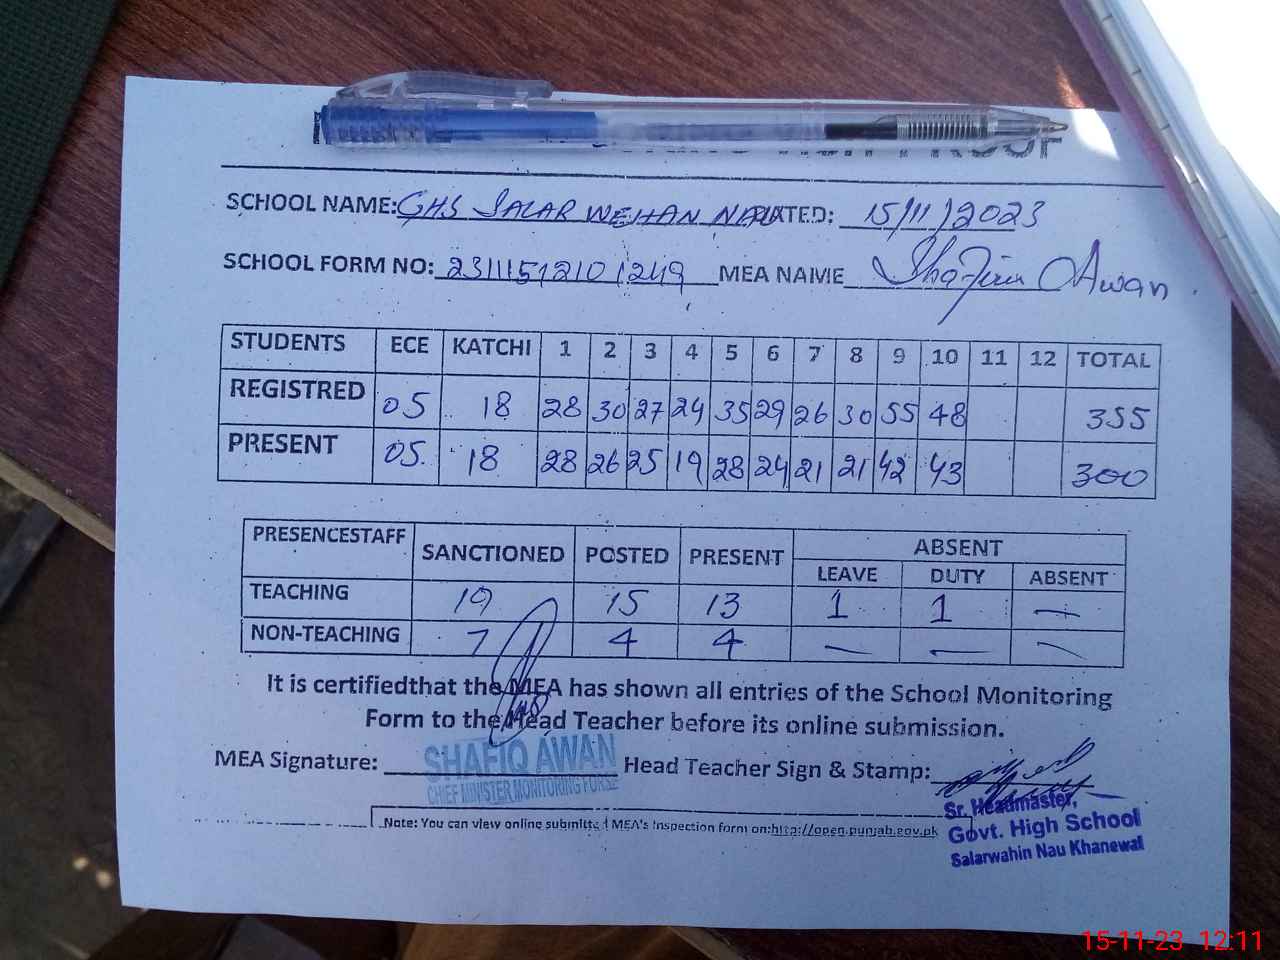 SCHOOL NAME: GHS SALAR WEHAN NAU DATED: 15/11/2023
SCHOOL FORM NO: 23111512101249 MEA NAME Shafiq Awan
STUDENTS ECE KATCHI 1 2 3 4 5 6 7 8 9 10 11 12 TOTAL
REGISTRED 05 18 28 30 27 24 35 29 26 30 55 48 355
PRESENT 05. 18 28 26 25 19 28 24 21 21 42 43 300
PRESENCESTAFF SANCTIONED POSTED PRESENT ABSENT
LEAVE DUTY ABSENT
TEACHING 19 15 13 1 1 —
NON-TEACHING 7 4 4 — — —
It is certifiedthat the MEA has shown all entries of the School Monitoring
Form to the Head Teacher before its online submission.
MEA Signature: SHAFIQ AWAN Head Teacher Sign & Stamp:
CHIEF MINISTER MONITORING FORCE
Sr. Headmaster,
Govt. High School
Salarwahin Nau Khanewal
Note: You can view online submitted MEA's inspection form on:http://open.punjab.gov.pk
15-11-23 12:11